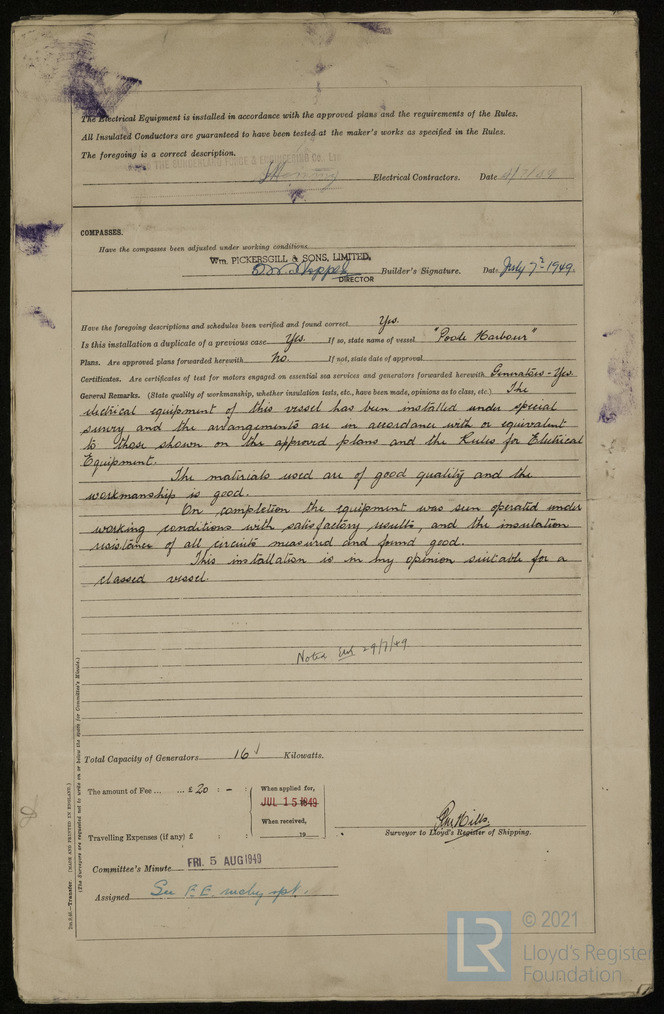 The Electrical Equipment is installed in accordance with the approved plans and the requirements of the Rules.
All Insulated Conductors are guaranteed to have been tested at the maker's works as specified in the Rules.
The foregoing is a correct description.
THE SUNDERLAND FORGE & ENGINEERING Co. Ltd
Electrical Contractors. Date 4/7/49
COMPASSES.
Have the compasses been adjusted under working conditions
Wm. PICKERSGILL & SONS, LIMITED.
Builder's Signature. Date July 7th 1949.
DIRECTOR
Have the foregoing descriptions and schedules been verified and found correct Yes.
Is this installation a duplicate of a previous case Yes. If so, state name of vessel "Poole Harbour"
Plans. Are approved plans forwarded herewith No. If not, state date of approval
Certificates. Are certificates of test for motors engaged on essential sea services and generators forwarded herewith Generators - Yes
General Remarks. (State quality of workmanship, whether insulation tests, etc., have been made, opinions as to class, etc.) The
electrical equipment of this vessel has been installed under special
survey and the arrangements are in accordance with or equivalent
to those shown on the approved plans and the Rules for Electrical
Equipment.
The materials used are of good quality and the
workmanship is good.
On completion the equipment was seen operated under
working conditions with satisfactory results, and the insulation
resistance of all circuits measured and found good.
This installation is in my opinion suitable for a
classed vessel.
Noted 29/7/49.
Total Capacity of Generators 161 Kilowatts.
The amount of Fee ... ... £ 20 : - :
When applied for,
JUL 15 1949
When received,
19
Travelling Expenses (if any) £ : :
Surveyor to Lloyd's Register of Shipping.
Committee's Minute FRI. 5 AUG 1949
Assigned See F.E. mchy rpt.
(MADE AND PRINTED IN ENGLAND.)
(The Surveyors are requested not to write on or below the space for Committee's Minute.)
LR
© 2021
Lloyd's Register
Foundation